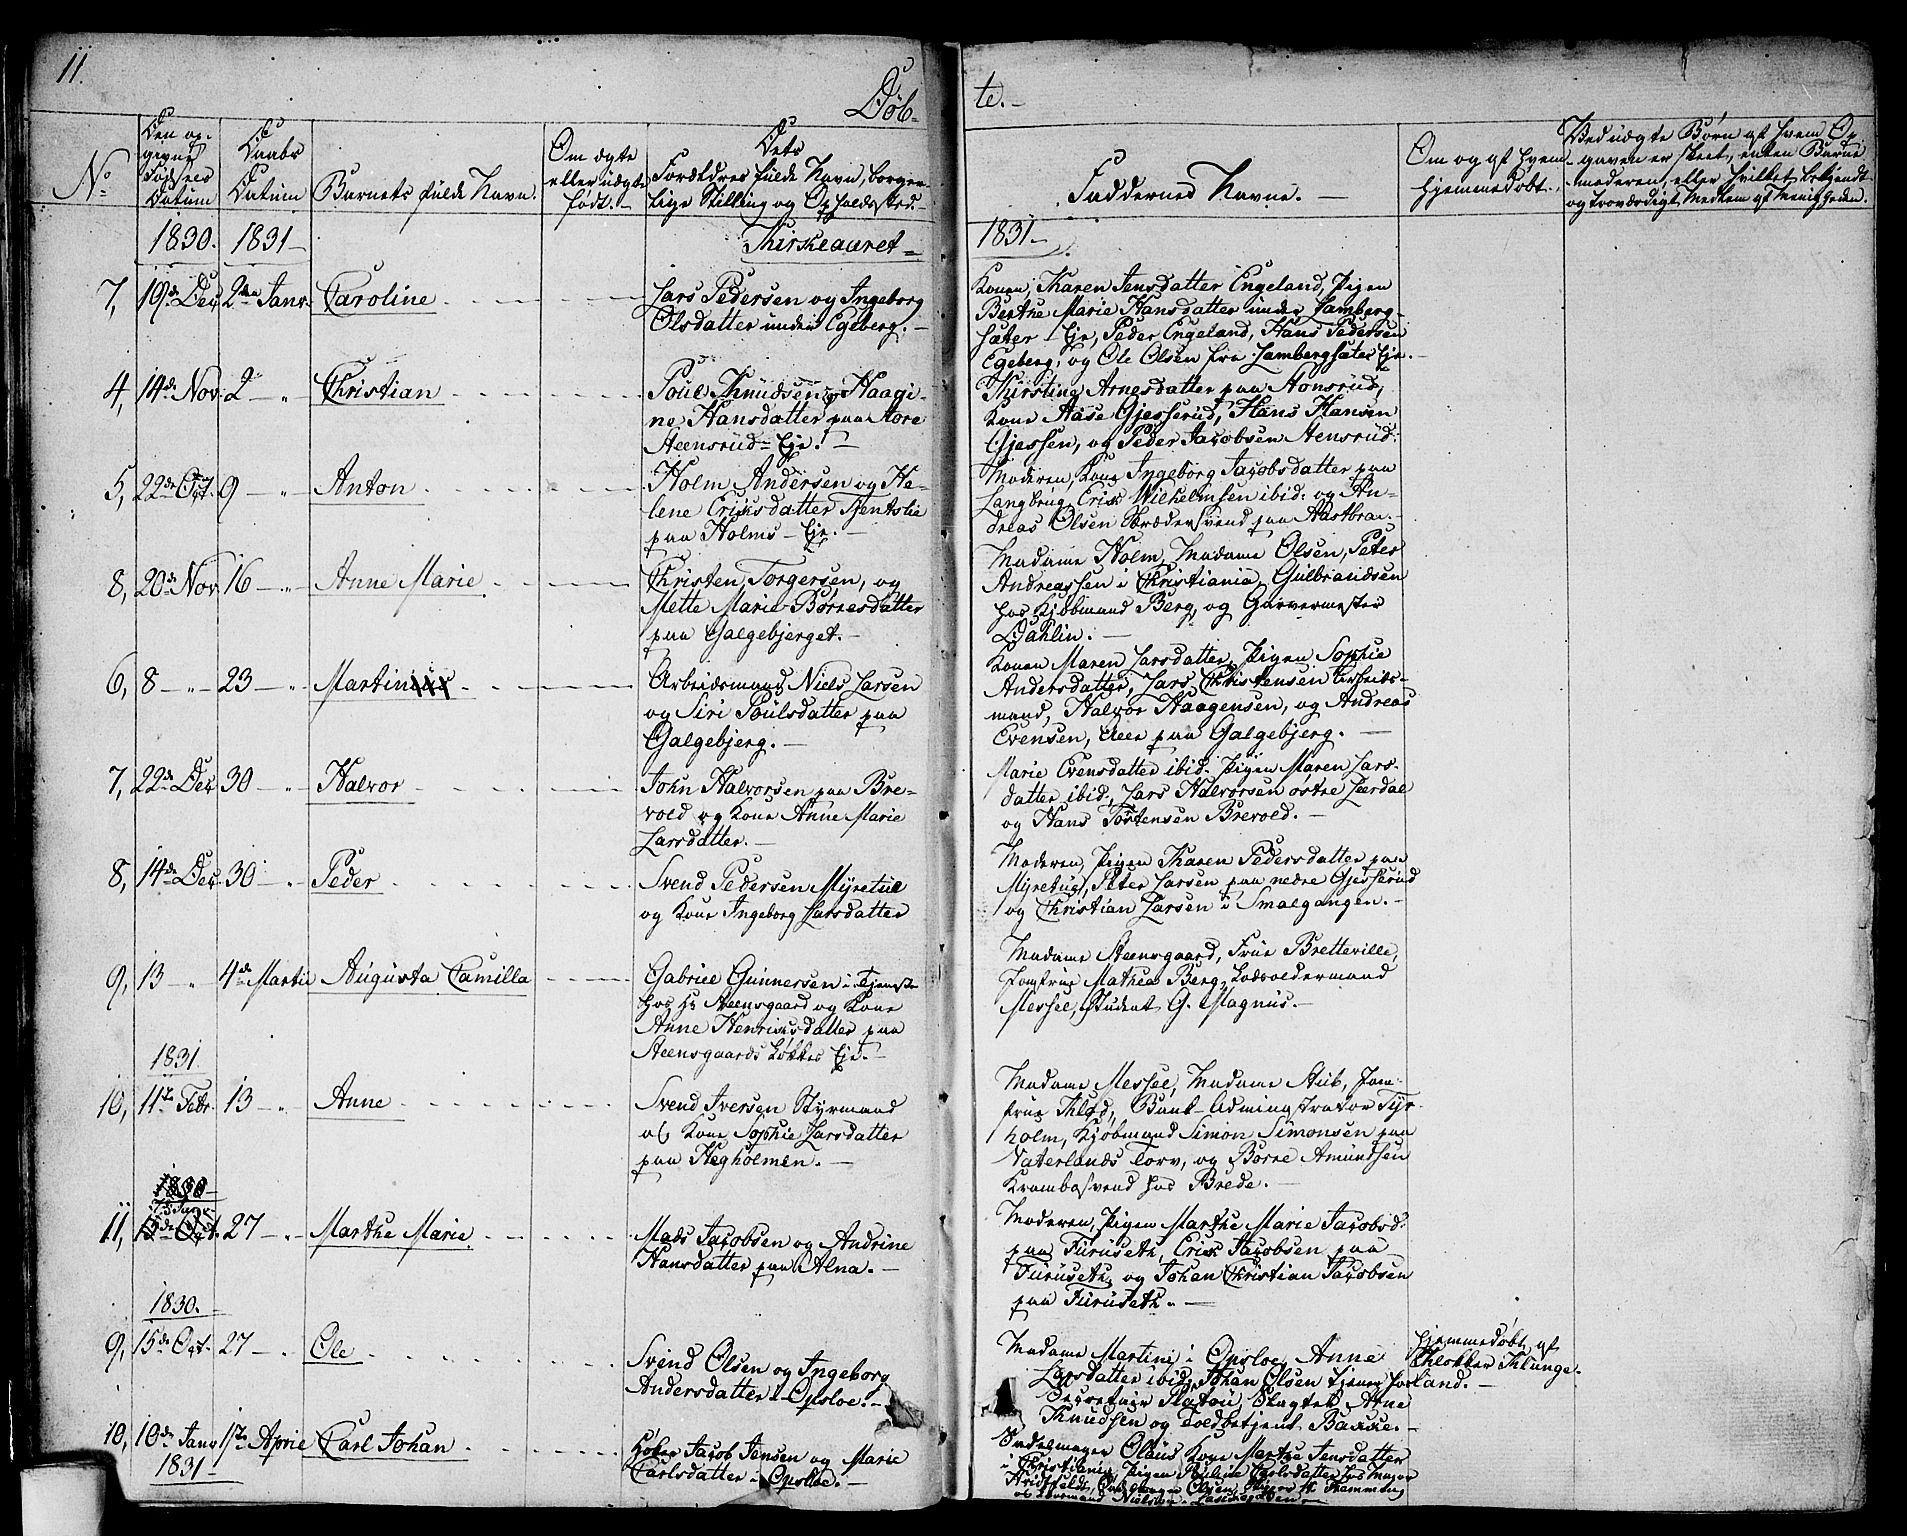 11.
Døb-
te.-
No
Den op-
givne
Fødsels
Datum
Daabs
Datum
Barnets fulde Navn.
Om ægte
eller uægte
født.-
Dets
Forældres fulde Navn, borger-
lige Stilling og Opholdssted.
Faddernes Navne. -
Om og af hvem
hjemmedøbt.
Ved uægte Børn af hvem Op-
gaven er skeet, enten Barne
moderen, eller hvilket bekjendt
og troværdigt Medlem af Menigheden.
1830. 1831- Kirkeaaret-
1831-
7, 19de Dec 2den Janr. Caroline
Lars Pedersen og Ingeborg
Olsdatter under Egeberg. -
Konen Karen Jensdatter Engeland, Pigen
Berthe Marie Hansdatter under Lamberg-
sæter Eje, Peder Engeland, Hans Pedersen
Egeberg, og Ole Olsen fra Lambergsæter Eje.
4, 14de Nov. 2 - " Christian
Poul Knudsen og Haagi-
ne Hansdatter paa Store
Steensrud-Eje! -
Kirsting Arnesdatter paa Stensrud,
Kone Aase Gjesserud, Hans Hansen
Gjessen, og Peder Jacobsen Stensrud.
5, 22de Oct. 9 - " Anton
Holm Andersen og He-
lene Ericksdatter Tjentslie
paa Holms-Eje. -
Moderen, Kone Ingeborg Jacobsdatter paa
Langbrug, Erick Wilhelmsen ibid. og An-
dreas Olsen Skrædersvend paa
8, 20de Nov. 16 - " Anne Marie
Christen Torgersen, og
Mette Marie Børresdatter
paa Galgebjerget. -
Madame Holm, Madame Olsen, Peter
Andreassen i Christiania, Gulbrandsen
hos Kjøbmand Berg, og Garvermester
Dahlin. -
6, 8 - " 23 - " Martin
Arbeidsmand Niels Larsen
og Siri Poulsdatter paa
Galgebjerg. -
Konen Maren Larsdatter, Pigen Sophie
Andersdatter, Lars Christensen Arbeids-
mand, Halvor Haagensen, og Andreas
Evensen, alle paa Galgebjerg. -
7, 22de Dec 30 - " Halvor
John Halvorsen paa Bre-
vold og Kone Anne Marie
Larsdatter. -
Marie Evensdatter ibid. Pigen Maren Lars-
datter ibid., Lars Halvorsen østre Leerdal
og Hans Torstensen Brevold. -
8, 14de Dec 30 - " Peder
Svend Pedersen Myretue
og Kone Ingeborg Larsdatter
Moderen, Pigen Karen Pedersdatter paa
Myretug, Peter Larsen paa nedre Gjesserud
og Christian Larsen i Smalgangen. -
9, 13 " 4de Martii Augusta Camilla
Gabriel Gunnersen i Tjeneste
hos Hr Steensgaard og Kone
Anne Henricksdatter paa
Steensgaards Løkkes Eje. -
Madame Steensgaard, Frue Bretteville,
Jomfrue Mathea Berg, Lodsoldermand
Messel, Student G. Magnus. -
1831.
10, 11te Febr. 13 - " Anne
Svend Iversen Styrmand
og Kone Sophie Larsdatter
paa Hegholmen. -
Madame Messel, Madame Stub, Jom-
frue Bank-Administrator Tyr-
holm, Kjøbmand Simon Simonsen paa
Vaterlands Torv, og Børre Amundsen
Krambosvend hos Brede. -
1830-
11, 15de Oct. 27 - " Marthe Marie
Mads Jacobsen og Andrine
Hansdatter paa Alna. -
Moderen, Pigen Marthe Marie Jacobsd.
paa Furuseth, Erick Jacobsen paa
Furuseth, og Johan Christian Jacobsen
paa Furuseth. -
1830.
9, 15de Oct. 27 - " Ole
Svend Olsen og Ingeborg
Andersdatter i Opsloe. -
Madame Martini i Opsloe, Anne
Larsdatter ibid, Johan Olsen tjener hos
Secretair Platou, Slagter Arne
Knudsen og Toldbetjent Bakke. -
Hjemmedøbt af
Klokker Klunge-
land. -
10, 10de Janr 17de April Carl Johan
1831-
Jacob Jensen og Marie
Carlsdatter i Opsloe. -
Sadelmager Olaus Kone Marthe Jensdatter
i Christiania, Pigen Pauline Carlsdatter hos Major